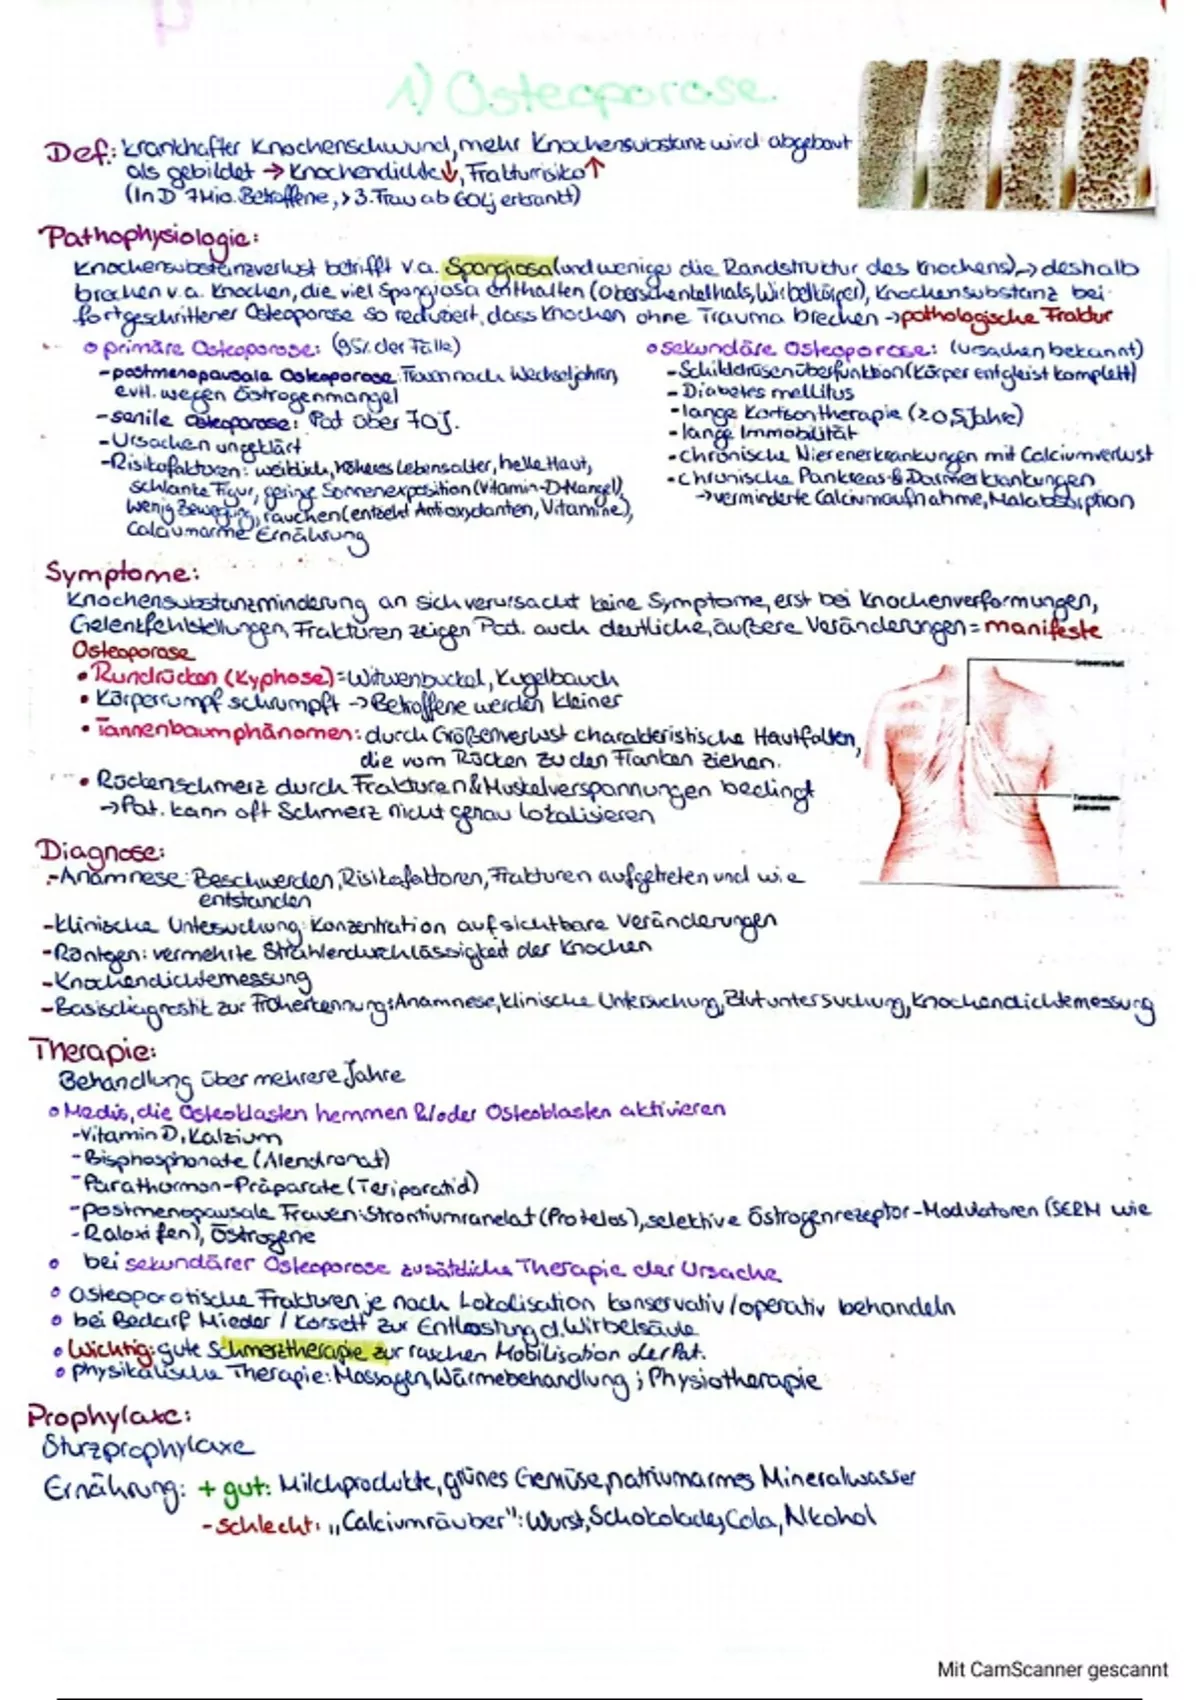 1) Osteoporose
Def.: krankhafter Knochenschwund, mehr Knochensubstanz wird abgebaut
als gebildet → Knochendichte↓, Frakturrisiko↑
(In D 7Mio. Betroffene, > 3. Frau ab 60Lj erkrankt)
Pathophysiologie:
Knochensubstanzverlust betrifft v.a. Spongiosa (und weniger die Randstruktur des Knochens) → deshalb
brechen v.a. Knochen, die viel Spongiosa enthalten (Oberschenkelhals, Wirbelkörper), Knochensubstanz bei
fortgeschrittener Osteoporose so reduziert, dass Knochen ohne Trauma brechen → pathologische Fraktur
o primäre Osteoporose: (95% der Fälle)
- postmenopausale Osteoporose: Frauen nach Wechseljahren,
evtl. wegen Östrogenmangel
- senile Osteoporose: Pat über 70J.
- Ursachen ungeklärt
- Risikofaktoren: weiblich, höheres Lebensalter, helle Haut,
schlanke Figur, geringe Sonnenexposition (Vitamin-D-Mangel),
wenig Bewegung, rauchen (entzieht Antioxydanten, Vitamine),
Calciumarme Ernährung
o sekundäre Osteoporose: (Ursachen bekannt)
- Schilddrüsenüberfunktion (Körper entgleist komplett)
- Diabetes mellitus
- lange Kortisontherapie (≥0,5 Jahre)
- lange Immobilität
- chronische Nierenerkrankungen mit Calciumverlust
- chronische Pankreas- & Darmerkrankungen
→ verminderte Calciumaufnahme, Malabsorption
Symptome:
Knochensubstanzminderung an sich verursacht keine Symptome, erst bei Knochenverformungen,
Gelenkfehlstellungen, Frakturen zeigen Pat. auch deutliche, äußere Veränderungen = manifeste
Osteoporose
• Rundrücken (Kyphose) = Witwenbuckel, Kugelbauch
• Körperrumpf schrumpft → Betroffene werden kleiner
• Tannenbaumphänomen: durch Größenverlust charakteristische Hautfalten,
die vom Rücken zu den Flanken ziehen.
• Rückenschmerz durch Frakturen & Muskelverspannungen bedingt
→ Pat. kann oft Schmerz nicht genau lokalisieren
Tannenbaum-
phänomen
Diagnose:
- Anamnese: Beschwerden, Risikofaktoren, Frakturen aufgetreten und wie
entstanden
- klinische Untersuchung: Konzentration auf sichtbare Veränderungen
- Röntgen: vermehrte Strahlendurchlässigkeit der Knochen
- Knochendichtemessung
- Basisdiagnostik zur Früherkennung: Anamnese, klinische Untersuchung, Blutuntersuchung, Knochendichtemessung
Therapie:
Behandlung über mehrere Jahre
o Medis, die Osteoklasten hemmen &/oder Osteoblasten aktivieren
- Vitamin D, Kalzium
- Bisphosphonate (Alendronat)
- Parathormon-Präparate (Teriparatid)
- postmenopausale Frauen: Strontiumranelat (Protelos), selektive Östrogenrezeptor-Modulatoren (SERM wie
- Raloxifen), Östrogene
o bei sekundärer Osteoporose zusätzliche Therapie der Ursache
o osteoporotische Frakturen je nach Lokalisation konservativ/operativ behandeln
o bei Bedarf Mieder / Korsett zur Entlastung d. Wirbelsäule
o Wichtig: gute Schmerztherapie zur raschen Mobilisation der Pat.
o physikalische Therapie: Massagen, Wärmebehandlung ; Physiotherapie
Prophylaxe:
Sturzprophylaxe
Ernährung: + gut: Milchprodukte, grünes Gemüse, natriumarmes Mineralwasser
- schlecht: „Calciumräuber": Wurst, Schokolade, Cola, Alkohol
Mit CamScanner gescannt